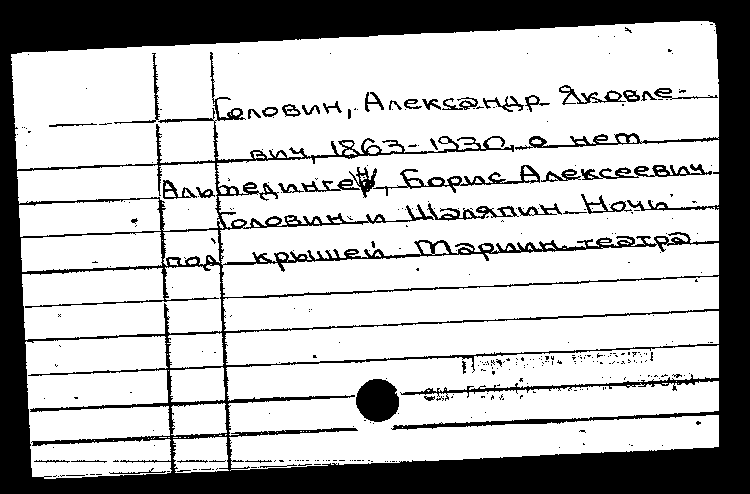 Головин, Александр Яковле-
вич, 1863-1930, о нем.
Альтединге, Борис Алексеевич.
Головин и Шаляпин. Ночи
под крышей Мариин. театра
см. под